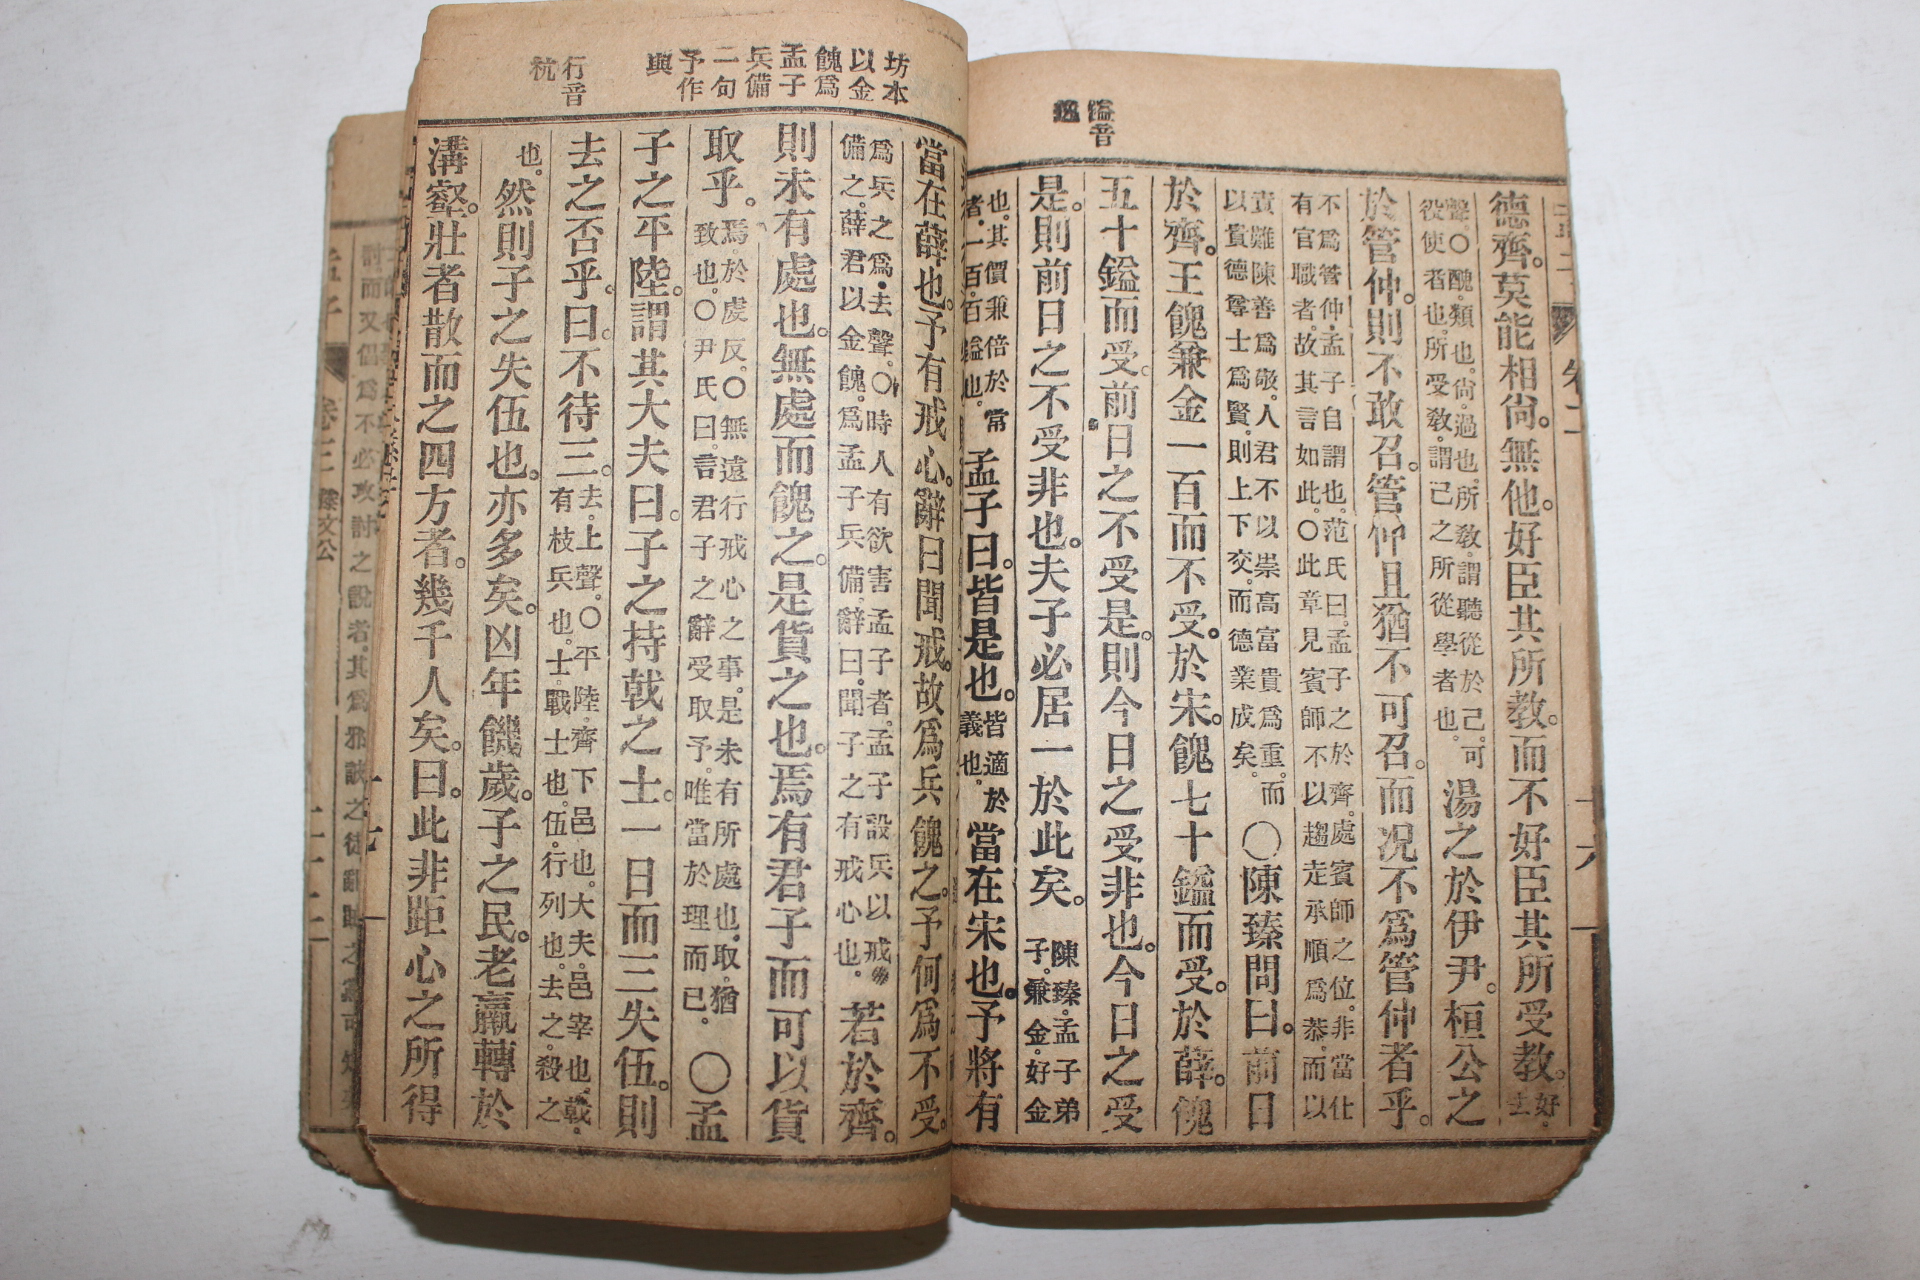 鎰音
德齊。莫能相尙。無他。好臣其所教。而不好臣其所受教。好。去
聲。〇醜。類也。尙。過也。所敎。謂聽從於己。可
役使者也。所受敎。謂己之所從學者也。
湯之於伊尹。桓公之
於管仲。則不敢召。管仲且猶不可召。而况不爲管仲者乎。
不爲管仲。孟子自謂也。范氏曰。孟子之於齊。處賓師之位。非當仕
有官職者。故其言如此。〇此章見賓師不以趨走承順爲恭。而以
責難陳善爲敬。人君不以崇高富貴爲重。而
以貴德尊士爲賢。則上下交。而德業成矣。
〇陳臻問曰。前日
於齊。王餽兼金一百而不受。於宋。餽七十鎰而受。於薛。餽
五十鎰而受。前日之不受是。則今日之受非也。今日之受
是。則前日之不受非也。夫子必居一於此矣。
陳臻。孟子弟
子。兼金。好金
也。其價兼倍於常
者。一百。百鎰也。
孟子曰。皆是也。
皆適於
義也。
當在宋也。予將有
坊本
以金
餽爲
孟子
兵備
二句
予作
與
行音
當在薛也。予有戒心。辭曰聞戒。故爲兵餽之。予何爲不受。
爲兵之爲。去聲。〇時人有欲害孟子者。孟子設兵以戒
備之。薛君以金餽。爲孟子兵備。辭曰。聞子之有戒心也。
若於齊。
則未有處也。無處而餽之。是貨之也。焉有君子而可以貨
取乎。
焉。於虔反。〇無遠行戒心之事。是未有所處也。取。猶
致也。〇尹氏曰。言君子之辭受取予。唯當於理而已。
〇孟
子之平陸。謂其大夫曰。子之持戟之士。一日而三失伍。則
去之否乎。曰。不待三。
去。上聲。〇平陸。齊下邑也。大夫。邑宰也。戟。
有枝兵也。士。戰士也。伍。行列也。去之。殺之
也。
然則子之失伍也。亦多矣。凶年饑歲。子之民。老羸轉於
溝壑。壯者散而之四方者。幾千人矣。曰。此非距心之所得
卷三 滕文公
討。而又倡爲不必攻討之說者。其爲邪詖之徒